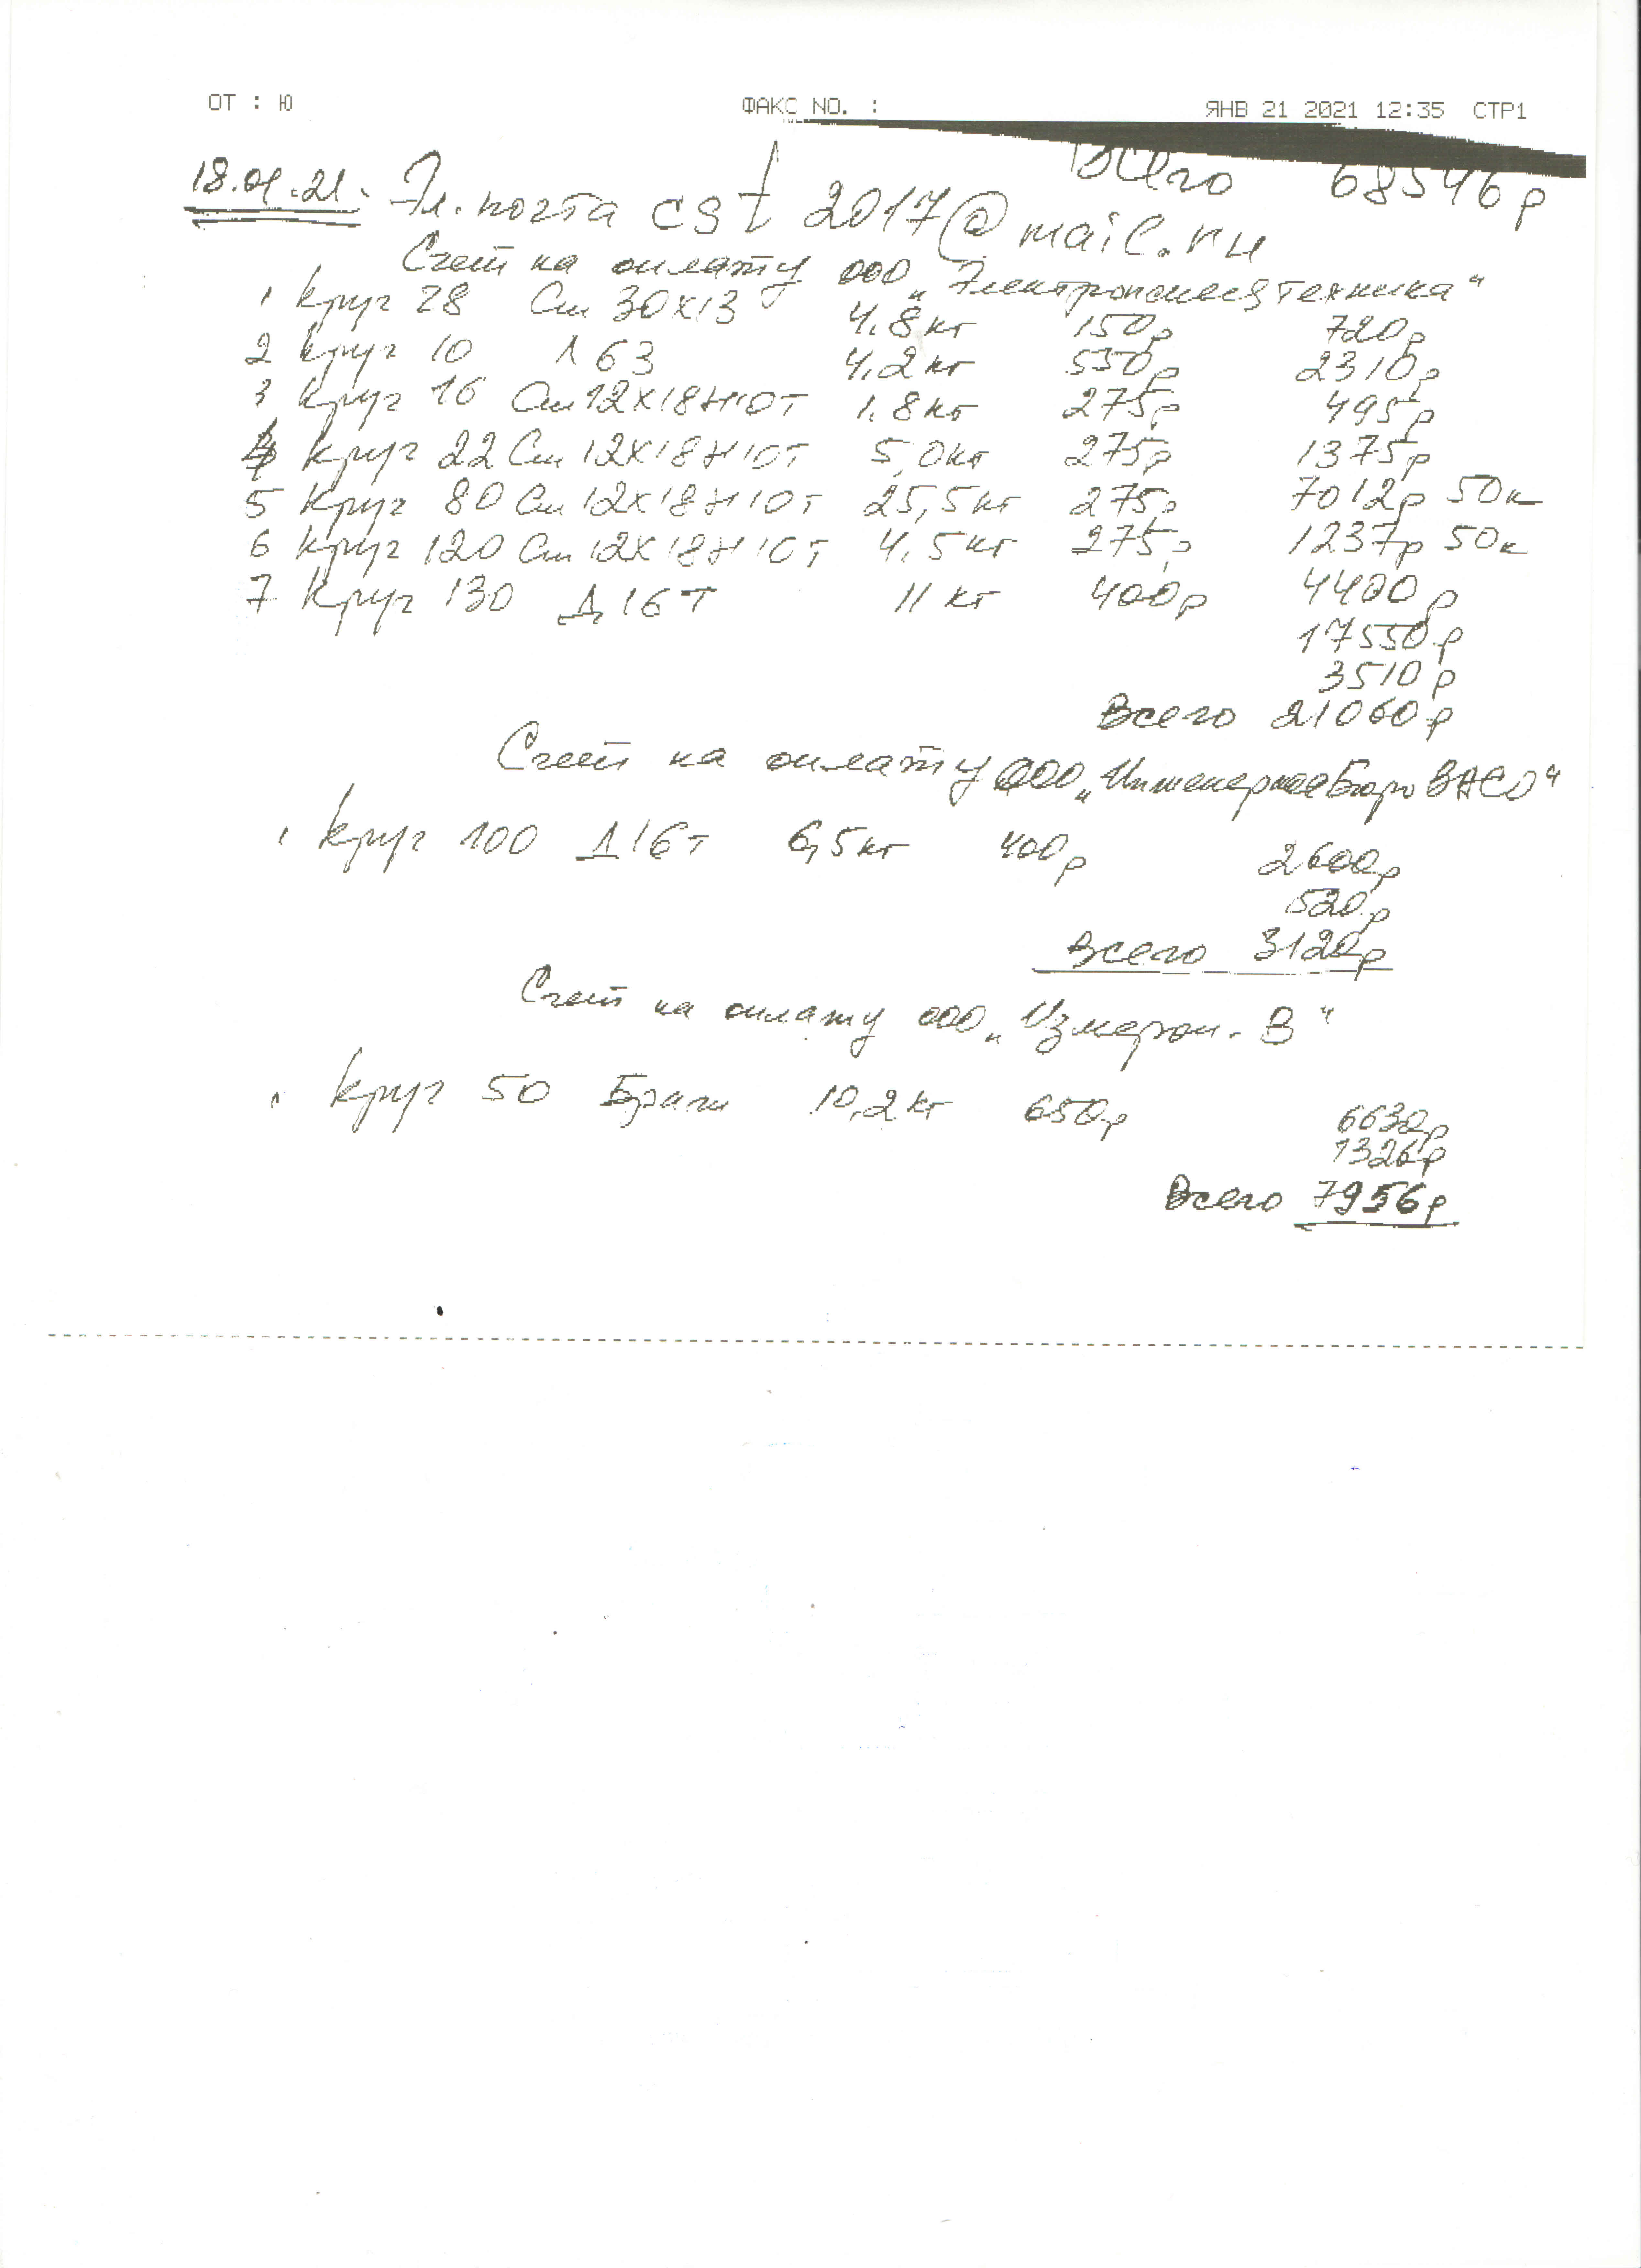 ОТ : Ю ФАКС NO. : ЯНВ 21 2021 12:35 СТР1
Всего 68546р
18.01.21. Эл. почта cst 2017@mail.ru
Счет на оплату ООО „Электронная техника“
1 Круг 28 Ст 30х13 4.8кг 150р 720р
2 Круг 10 Л63 4,2кг 550р 2310р
3 Круг 16 Ст12Х18Н10Т 1.8кг 275р 495р
4 Круг 22 Ст 12Х18Н10Т 5,0кг 275р 1375р
5 Круг 80 Ст 12Х18Н10Т 25,5кг 275р 7012р 50к
6 Круг 120 Ст 12Х18Н10Т 4,5кг 275р 1237р 50к
7 Круг 130 Д16Т 11 кг 400р 4400р
17550р
3510р
Всего 21060р
Счет на оплату ООО „Инженерное Бюро ВАСО“
1 Круг 100 Д16Т 6,5кг 400р 2600р
520р
Всего 3120р
Счет на оплату ООО „Измерон-В“
1 Круг 50 10,2кг 650р 6630р
1326р
Всего 7956р